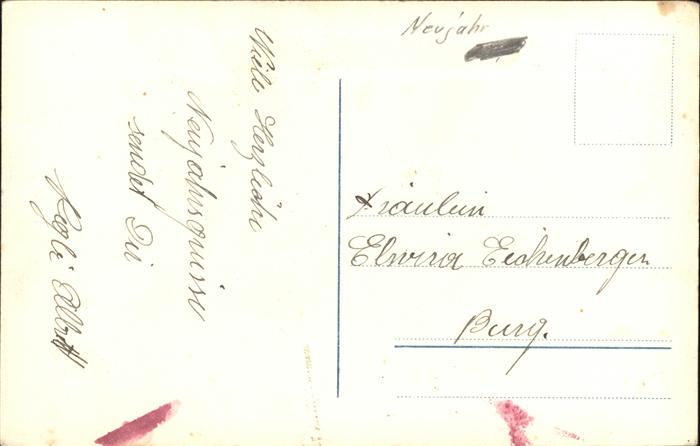 Neujahr
Viele Herzliche
Neujahrsgrüsse
sendet Dir
Hegli Albert
Fräulein
Elwira Eichenberger
Burg.